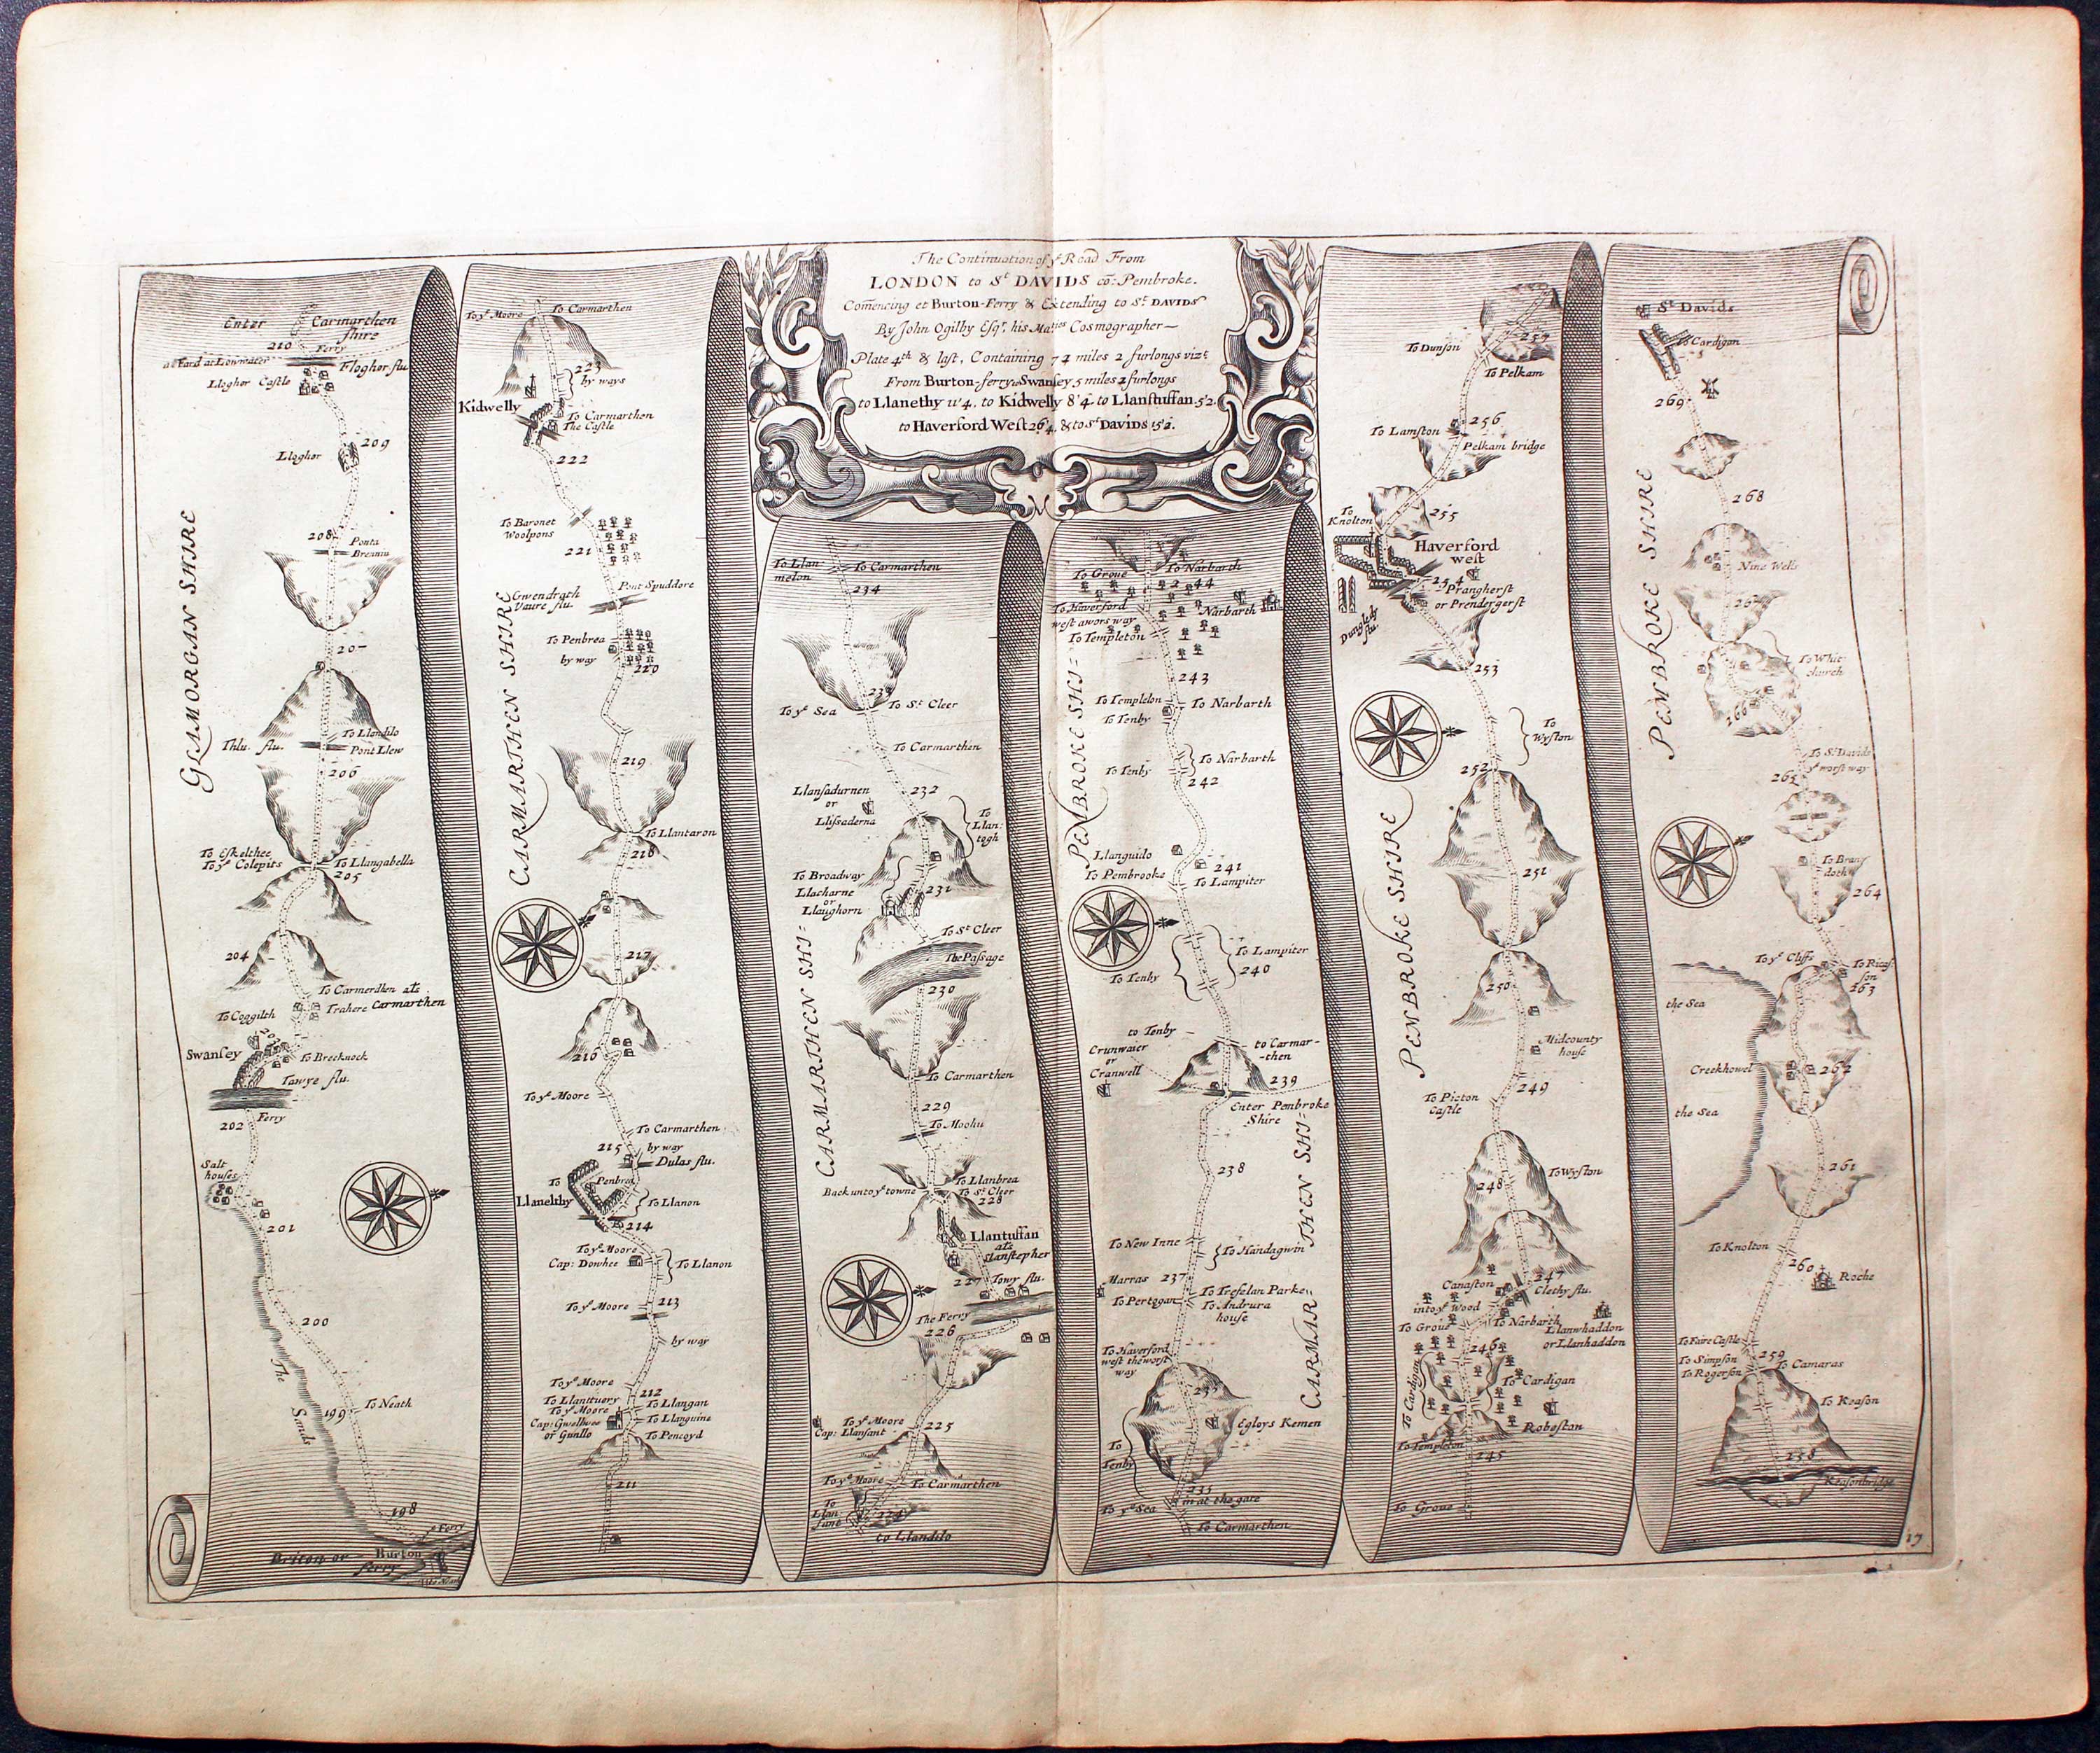 The Continuation of yᵉ Road From
LONDON to Sᵗ DAVIDS cõ: Pembroke.
Comencing at Burton-Ferry & Extending to Sᵗ DAVIDS
By John Ogilby Esqʳ. his Maᵗⁱᵉˢ Cosmographer
Plate 4ᵗʰ & last, Containing 74 miles 2 furlongs vizᵗ
From Burton-ferry to Swansey 5 miles 2 furlongs
to Llanethy 11'4, to Kidwelly 8'4 to Llanstuffan 5'2.
to Haverford West 26'4, & to Sᵗ Davids 15'2.
Enter Carmarthen shire
210
Ferry
Floghor flu
Lloghor Castle
209
Lloghor
GLAMORGAN SHIRE
208
Ponta Breanin
207
To Llandilo
Thlu. flu.
Pont Llew
206
To Eskelthee
To yᵉ Colepits
To Llangabella
205
204
To Carmerdhen als
Trahere Carmarthen
To Coggilth
Swansey
To Brecknock
Tawye flu.
Ferry
202
Salt houses
201
200
The Sands
199
To Neath
198
Ferry
Briton or Burton ferry
To yᵉ Moore
To Carmarthen
223
by ways
Kidwelly
To Carmarthen
The Castle
222
To Baronet Woolpons
221
Pont Spuddore
Gwendrath Vaure flu.
To Penbrea
by way
220
CARMARTHEN SHIRE
219
To Llantaron
218
217
216
To yᵉ Moore
To Carmarthen
215
by way
Dulas flu.
To Penbrea
Llanelthy
To Llanon
214
To yᵉ Moore
Cap: Dowhee
To Llanon
To yᵉ Moore
213
by way
To yᵉ Moore
212
To Llanttuery
To Llangan
To yᵉ Moore
Cap: Gwelhvee or Gunllo
To Llanguine
To Pencoyd
211
To Llan melon
To Carmarthen
234
233
To yᵉ Sea
To Sᵗ Cleer
To Carmarthen
Llansadurnen or Llissaderna
232
To Llan: togh
To Broadway
Llacharne or Llaughorn
231
To Sᵗ Cleer
The Passage
230
CARMARTHEN SHI=
To Carmarthen
229
To Moohu
Back unto yᵉ towne
To Llanbrea
To Sᵗ Cleer
228
Llantuffan als Llanstepher
227
Towy flu.
The Ferry
226
To yᵉ Moore
Cap: Llansant
225
To yᵉ Moore
To Carmarthen
To Llan sant
224
to Llandilo
To Grove
To Narbarth
244
To Haverford west a wors way
Narbarth
To Templeton
243
To Templeton
To Narbarth
To Tenby
To Narbarth
To Tenby
242
PENBROKE SHI=
Llanguido
241
To Pembrooke
To Lampiter
To Lampiter
To Tenby
240
to Tenby
Crunwaier or Cranwell
to Carmar-
-then
239
Enter Penbroke Shire
238
CARMAR=THEN SHI=
To New Inne
To Handagwin
Marras
237
To Pertogan
To Trefelan Parke
To Andrura house
To Haverford west the worst way
Egloys Kemen
To Tenby
235
in at the gate
To yᵉ Sea
To Carmarthen
257
To Dunson
To Pelkam
256
To Lamston
Pelkam bridge
To Knolton
255
Haverford west
254
Prangherst or Prendergerst
Dungledy flu.
253
To Wyston
252
251
PENBROKE SHIRE
250
Midcounty house
249
To Picton Castle
To Wyston
248
247
Canaston
Clethy flu.
into yᵉ Wood
To Grove
To Narbarth
Llanwhaddon or Llanhaddon
246
To Cardigan
To Cardigan
Robeston
To Templeton
245
To Grove
Sᵗ Davids
To Cardigan
269
268
Nine Wells
267
PENBROKE SHIRE
To Whit church
266
To Sᵗ Davids yᵉ worst way
265
To Bran doth
264
To yᵉ Cliffs
To Ricas son
263
the Sea
Creekhowel
262
the Sea
261
To Knolton
260
Roche
To Faire Castle
To Simpson
259
To Camaras
To Rogerson
To Keason
258
Keasonbridge
17